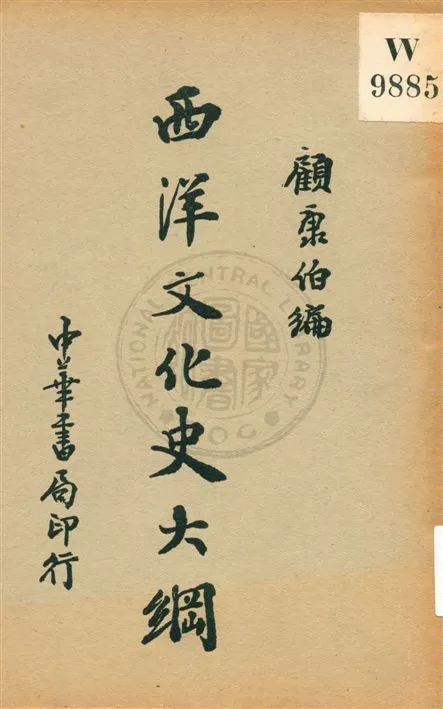 W
9885
顧康伯編
西洋文化史大綱
中華書局印行
NATIONAL CENTRAL LIBRARY
國家圖書館
ROC